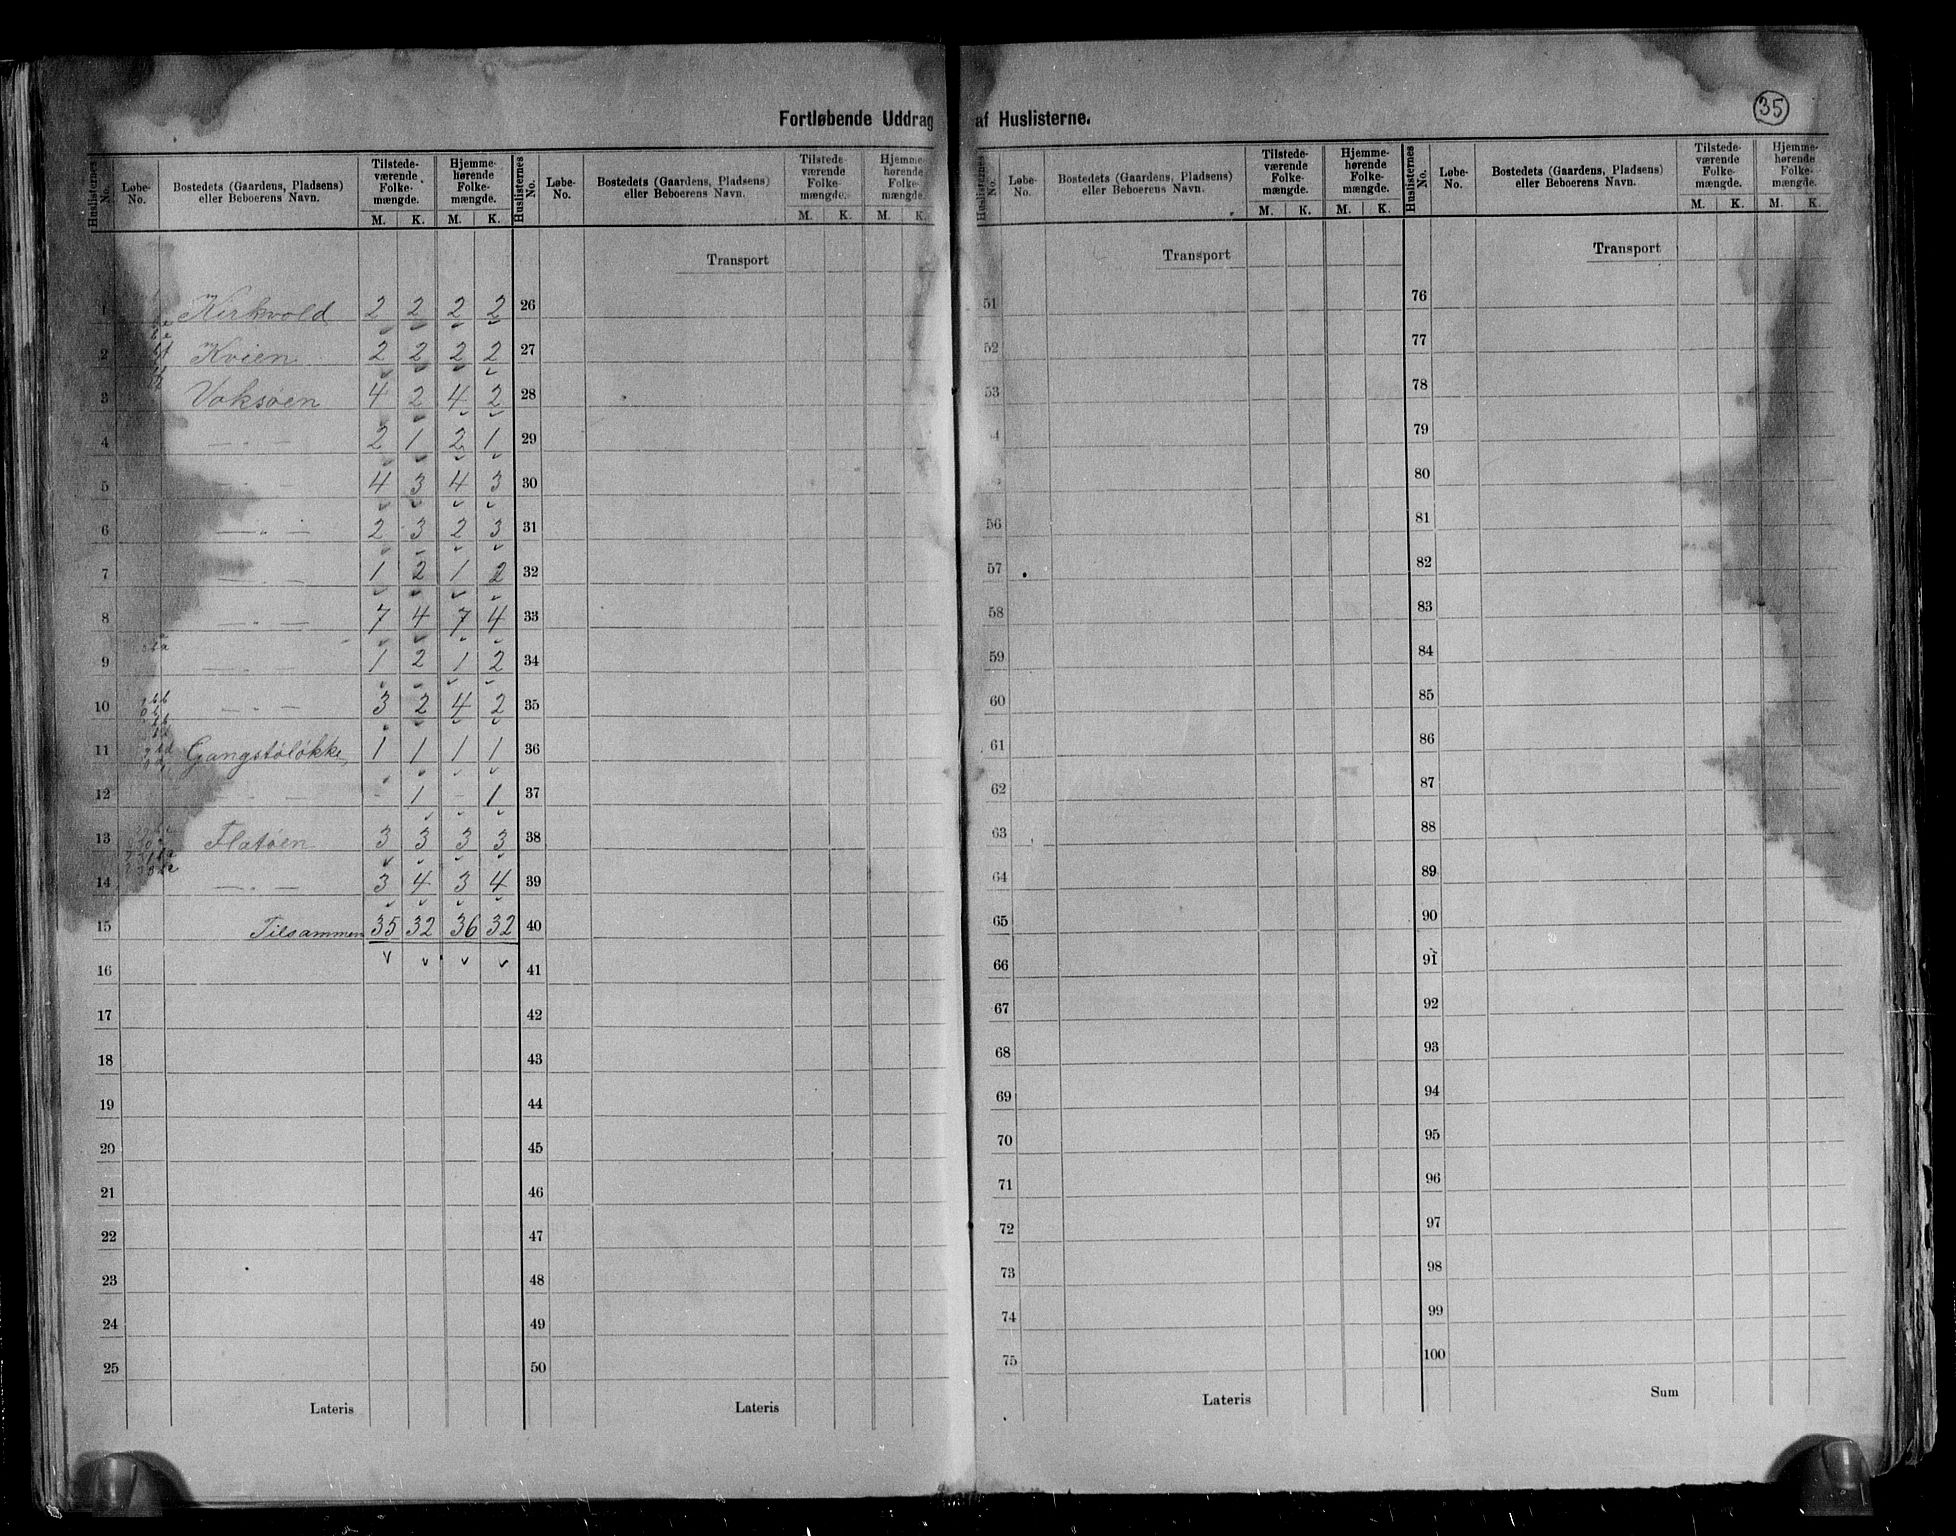 35
Fortløbende Uddrag af Huslisterne.
Huslisternes No. Løbe-No. Bostedets (Gaardens, Pladsens) eller Beboerens Navn. Tilstedeværende Folkemængde. M. K. Hjemmehørende Folkemængde. M. K.
Huslisternes No. Løbe-No. Bostedets (Gaardens, Pladsens) eller Beboerens Navn. Tilstedeværende Folkemængde. M. K. Hjemmehørende Folkemængde. M. K.
Huslisternes No. Løbe-No. Bostedets (Gaardens, Pladsens) eller Beboerens Navn. Tilstedeværende Folkemængde. M. K. Hjemmehørende Folkemængde. M. K.
Huslisternes No. Løbe-No. Bostedets (Gaardens, Pladsens) eller Beboerens Navn. Tilstedeværende Folkemængde. M. K. Hjemmehørende Folkemængde. M. K.
1 Kirkvold 2 2 2 2
2 Kvien 2 2 2 2
3 Voksøen 4 2 4 2
4 — „ — 2 1 2 1
5 — „ — 4 3 4 3
6 — „ — 2 3 2 3
7 — „ — 1 2 1 2
8 — „ — 7 4 7 4
9 — „ — 1 2 1 2
10 — „ — 3 2 4 2
11 Gangstøløkke, 1 1 1 1
12 — „ — - 1 - 1
13 Flatøen 3 3 3 3
14 — „ — 3 4 3 4
15 Tilsammen 35 32 36 32
16
17
18
19
20
21
22
23
24
25
Lateris
Transport
26
27
28
29
30
31
32
33
34
35
36
37
38
39
40
41
42
43
44
45
46
47
48
49
50
Lateris
Transport
51
52
53
56
57
58
59
60
61
62
63
64
65
66
67
68
69
70
71
72
73
74
75
Lateris
Transport
76
77
78
79
80
81
82
83
84
85
86
87
88
89
90
91
92
93
94
95
96
97
98
99
100
Sum